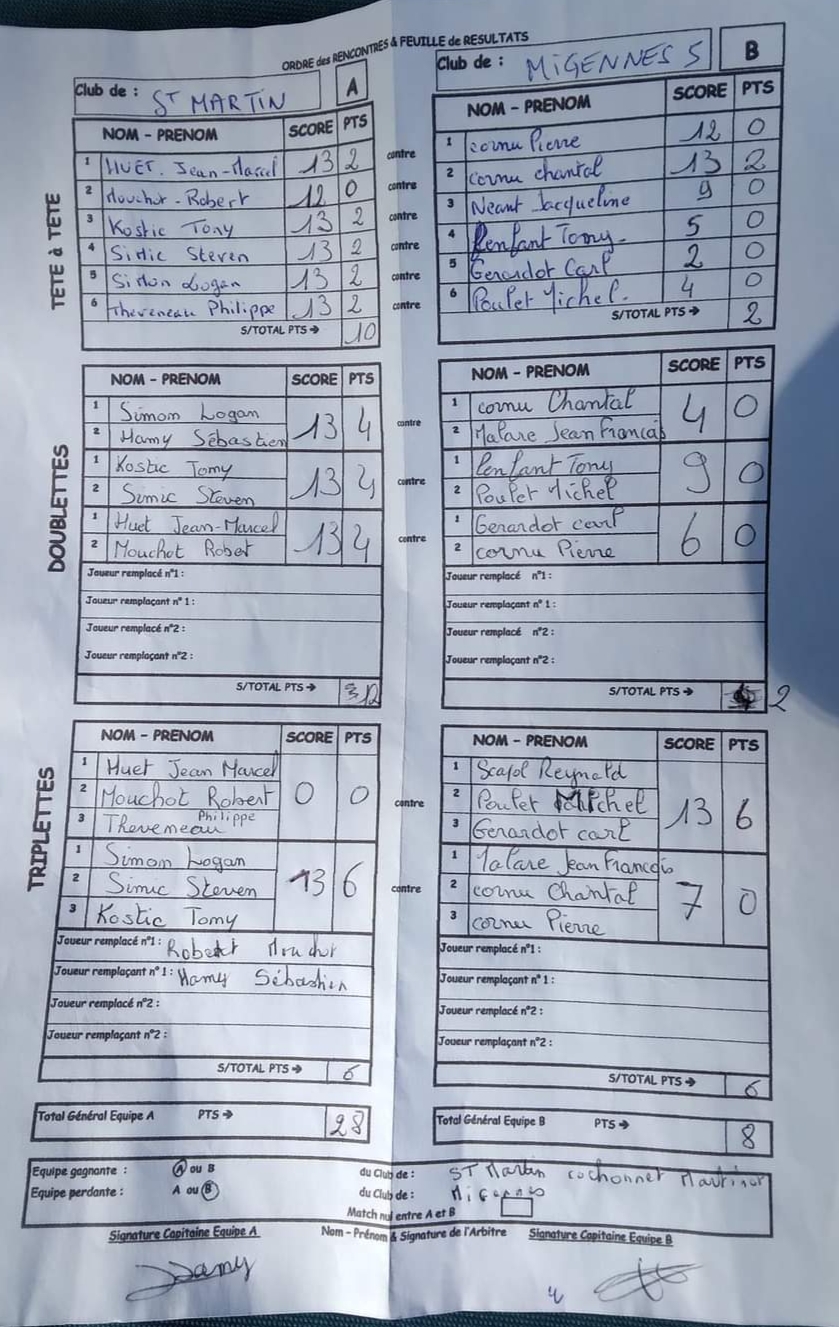 ORDRE des RENCONTRES & FEUILLE de RESULTATS
Club de : ST MARTIN A
Club de : MIGENNES 5 B
TETE à TETE
NOM - PRENOM SCORE PTS NOM - PRENOM SCORE PTS
1 HUET. Jean-Marcel 13 2 contre 1 cornu Pierre 12 0
2 Mouchot - Robert 12 0 contre 2 cornu chantal 13 2
3 Kostic Tony 13 2 contre 3 Neant Jacqueline 9 0
4 Simic Steven 13 2 contre 4 Penfant Tony 5 0
5 Simon Logan 13 2 contre 5 Gerardot Carl 2 0
6 Theveneau Philippe 13 2 contre 6 Poulet Michel. 4 0
S/TOTAL PTS → 10 S/TOTAL PTS → 2
DOUBLETTES
NOM - PRENOM SCORE PTS NOM - PRENOM SCORE PTS
1 Simon Logan 13 4 contre 1 cornu Chantal 4 0
2 Hamy Sébastien 2 Malare Jean Francois
1 Kostic Tomy 13 4 contre 1 Penfant Tony 9 0
2 Simic Steven 2 Poulet Michel
1 Huet Jean-Marcel 13 4 contre 1 Gerardot carl 6 0
2 Mouchot Robert 2 cornu Pierre
Joueur remplacé n°1 : Joueur remplacé n°1 :
Joueur remplaçant n° 1 : Joueur remplaçant n° 1 :
Joueur remplacé n°2 : Joueur remplacé n°2 :
Joueur remplaçant n°2 : Joueur remplaçant n°2 :
S/TOTAL PTS → 12 S/TOTAL PTS → 2
TRIPLETTES
NOM - PRENOM SCORE PTS NOM - PRENOM SCORE PTS
1 Huet Jean Marcel 0 0 contre 1 Reynald 13 6
2 Mouchot Robert 2 Poulet Michel
3 Theveneau Philippe 3 Gerardot carl
1 Simon Logan 13 6 contre 1 Malare Jean Francois 7 0
2 Simic Steven 2 cornu Chantal
3 Kostic Tomy 3 cornu Pierre
Joueur remplacé n°1 : Robert Mouchot Joueur remplacé n°1 :
Joueur remplaçant n° 1 : Hamy Sébastien Joueur remplaçant n° 1 :
Joueur remplacé n°2 : Joueur remplacé n°2 :
Joueur remplaçant n°2 : Joueur remplaçant n°2 :
S/TOTAL PTS → 6 S/TOTAL PTS → 6
Total Général Equipe A PTS → 28 Total Général Equipe B PTS → 8
Equipe gagnante : A ou B du Club de : ST Martin cochonnet Martinot
Equipe perdante : A ou B du Club de : Migennes
Match nul entre A et B
Signature Capitaine Equipe A Nom - Prénom & Signature de l'Arbitre Signature Capitaine Equipe B
Hamy